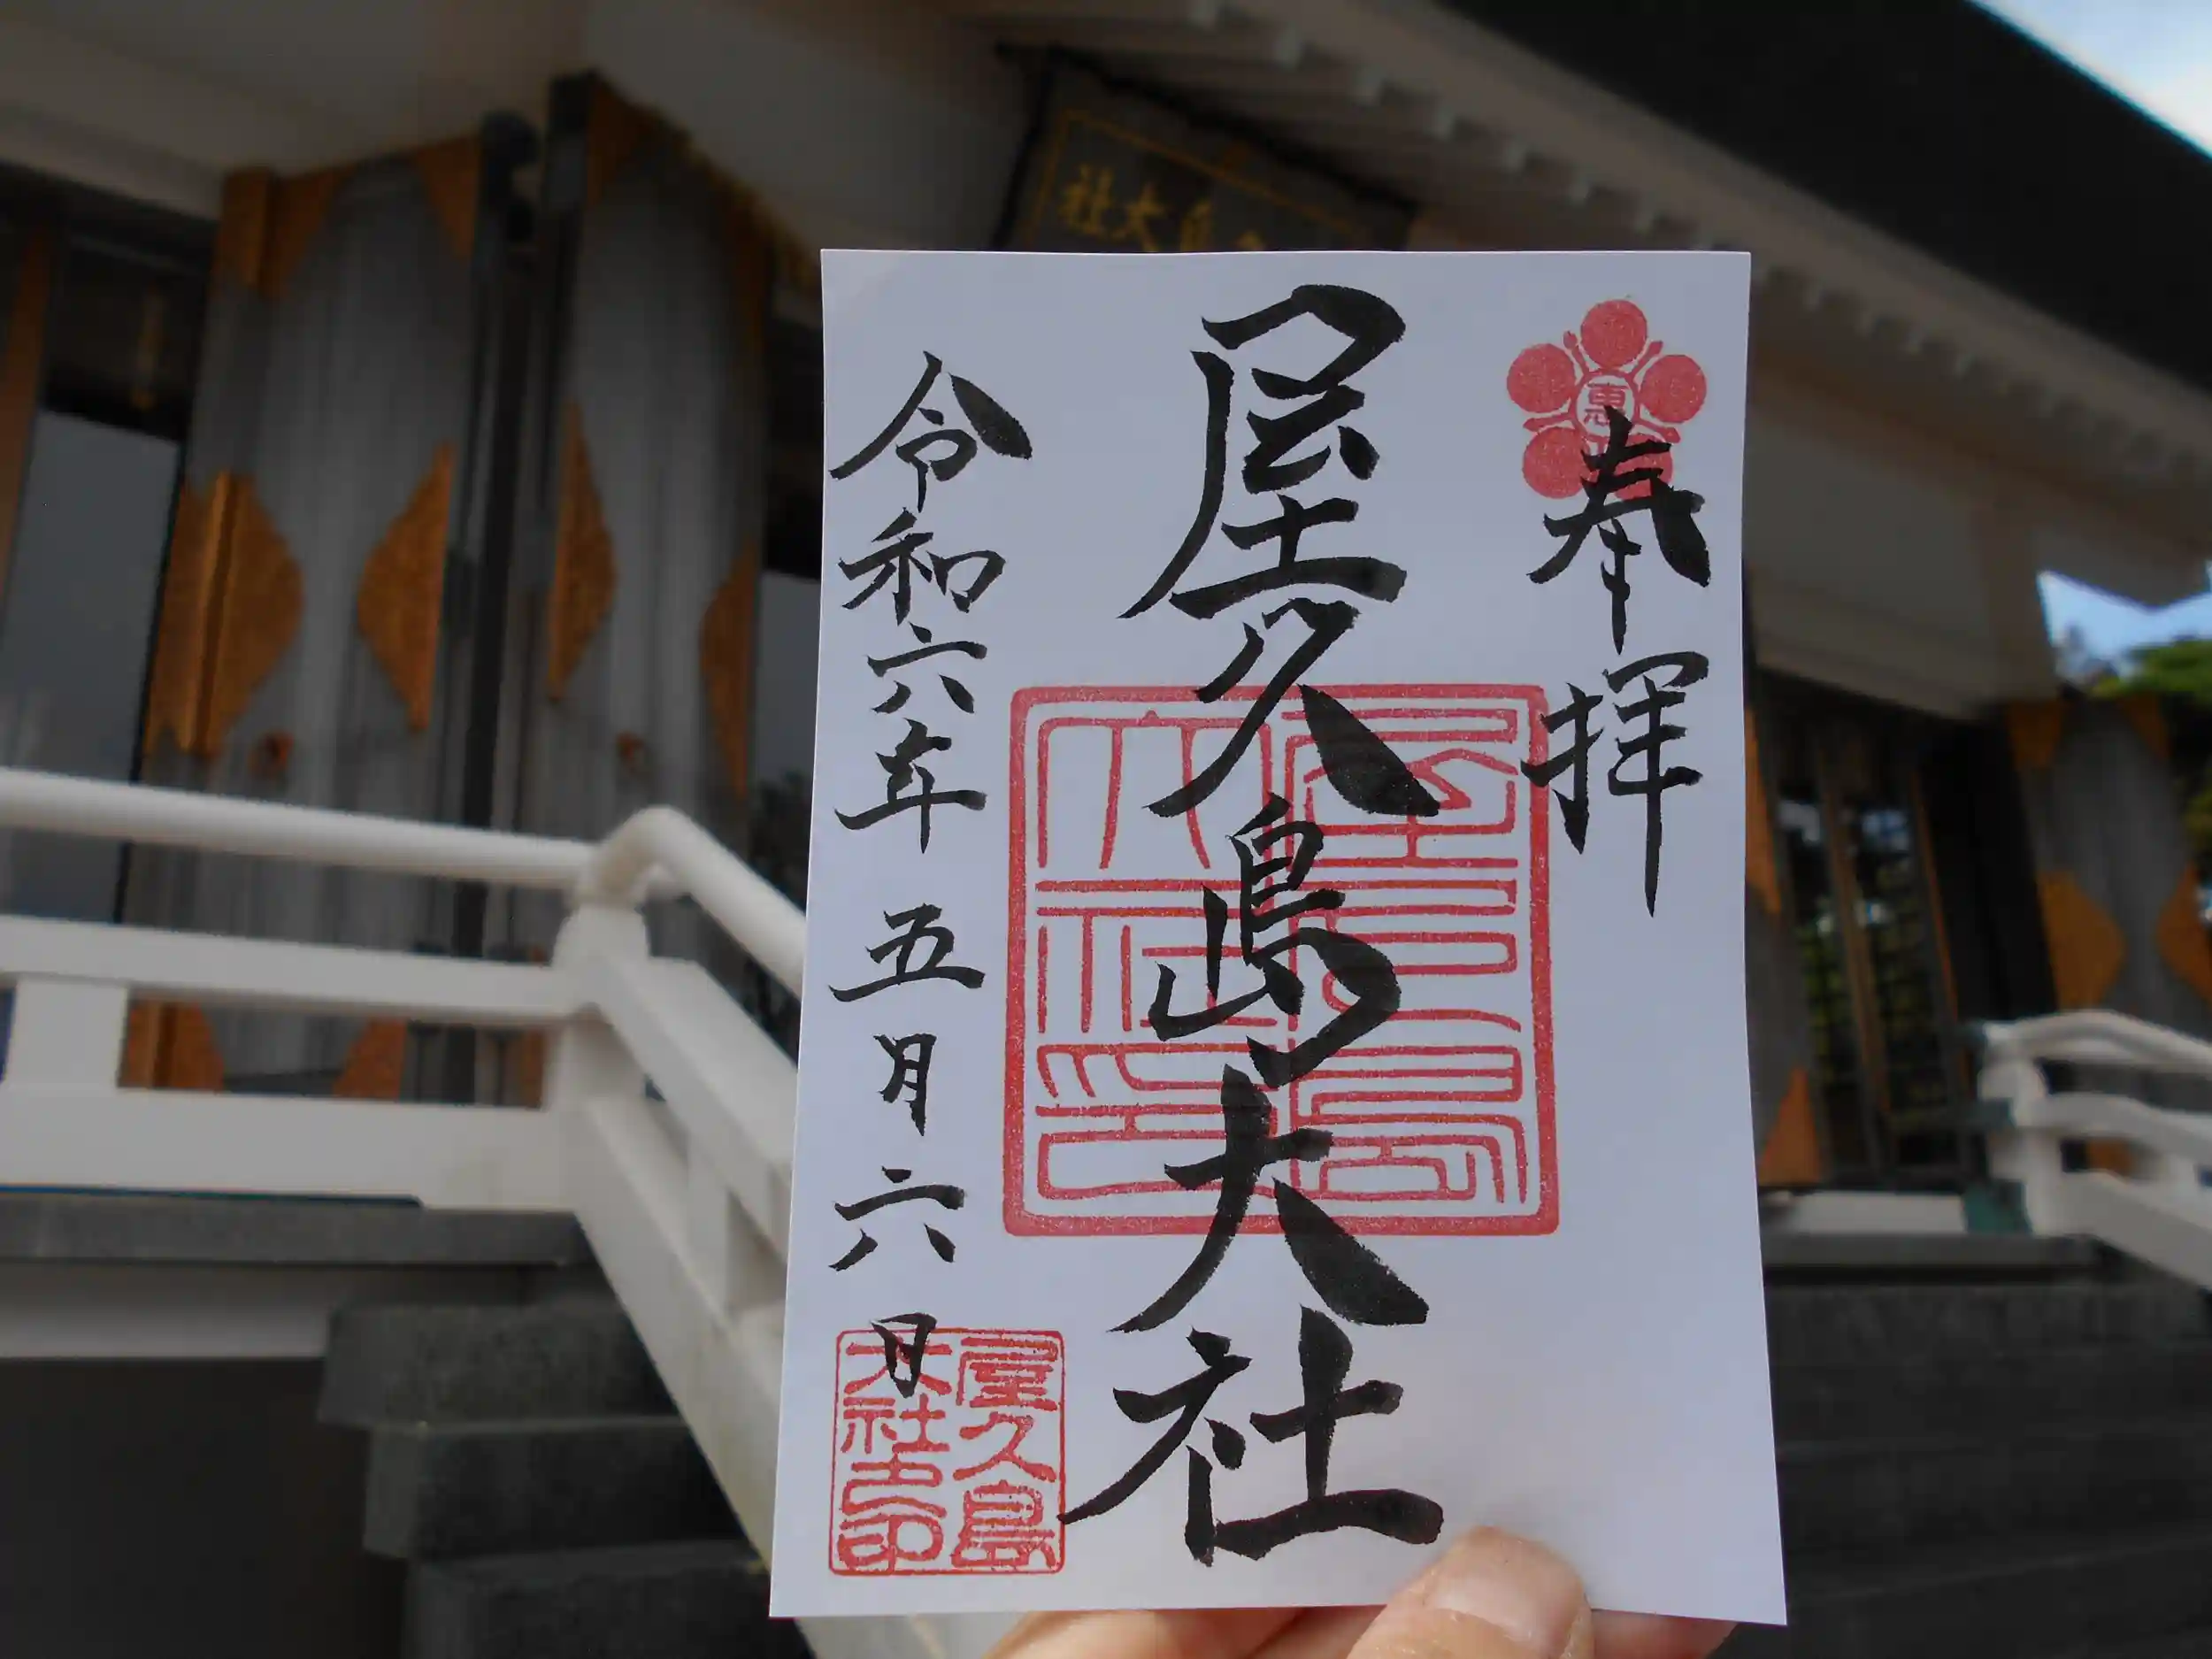 奉拝
恵
屋久島大社
令和六年 五月六日
屋久島
大社之印
屋久島
大社印
大社